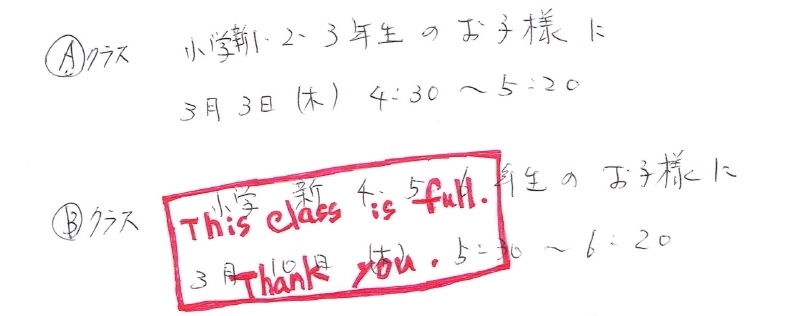 Ⓐクラス 小学新1・2・3年生のお子様に
3月3日(木) 4:30～5:20
Ⓑクラス 小学 新 4・5・6年生のお子様に
3月10日(木) 5:30～6:20
This class is full.
Thank you.